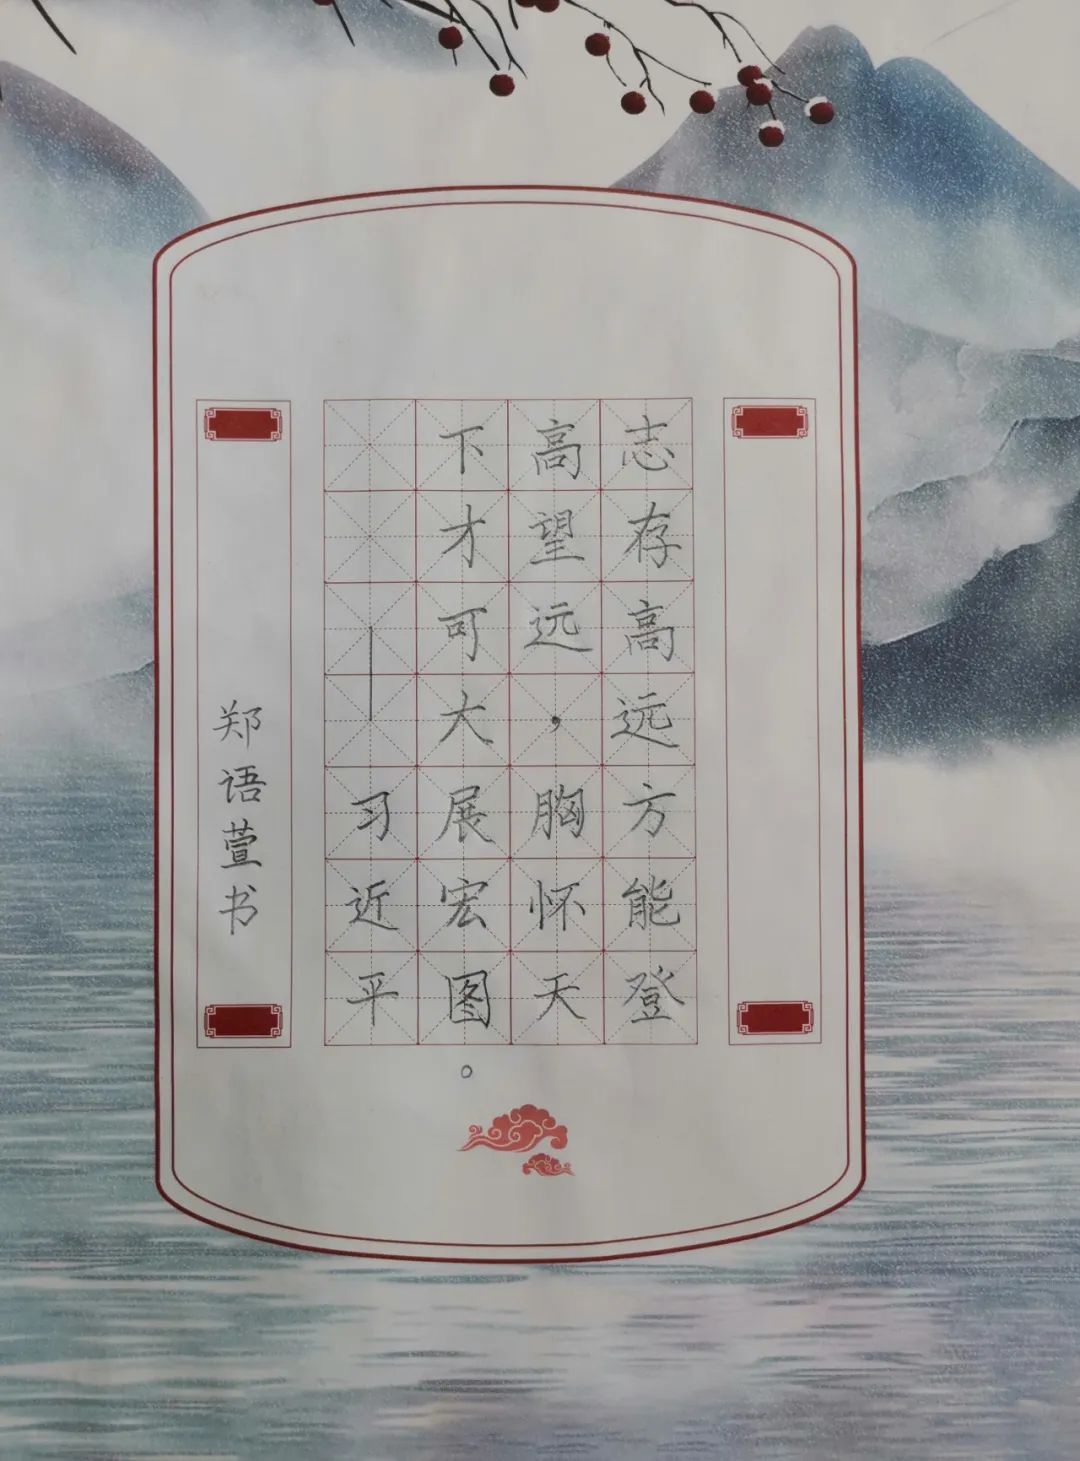 志存高远方能登
高望远，胸怀天
下才可大展宏图。
—习近平
郑语萱书